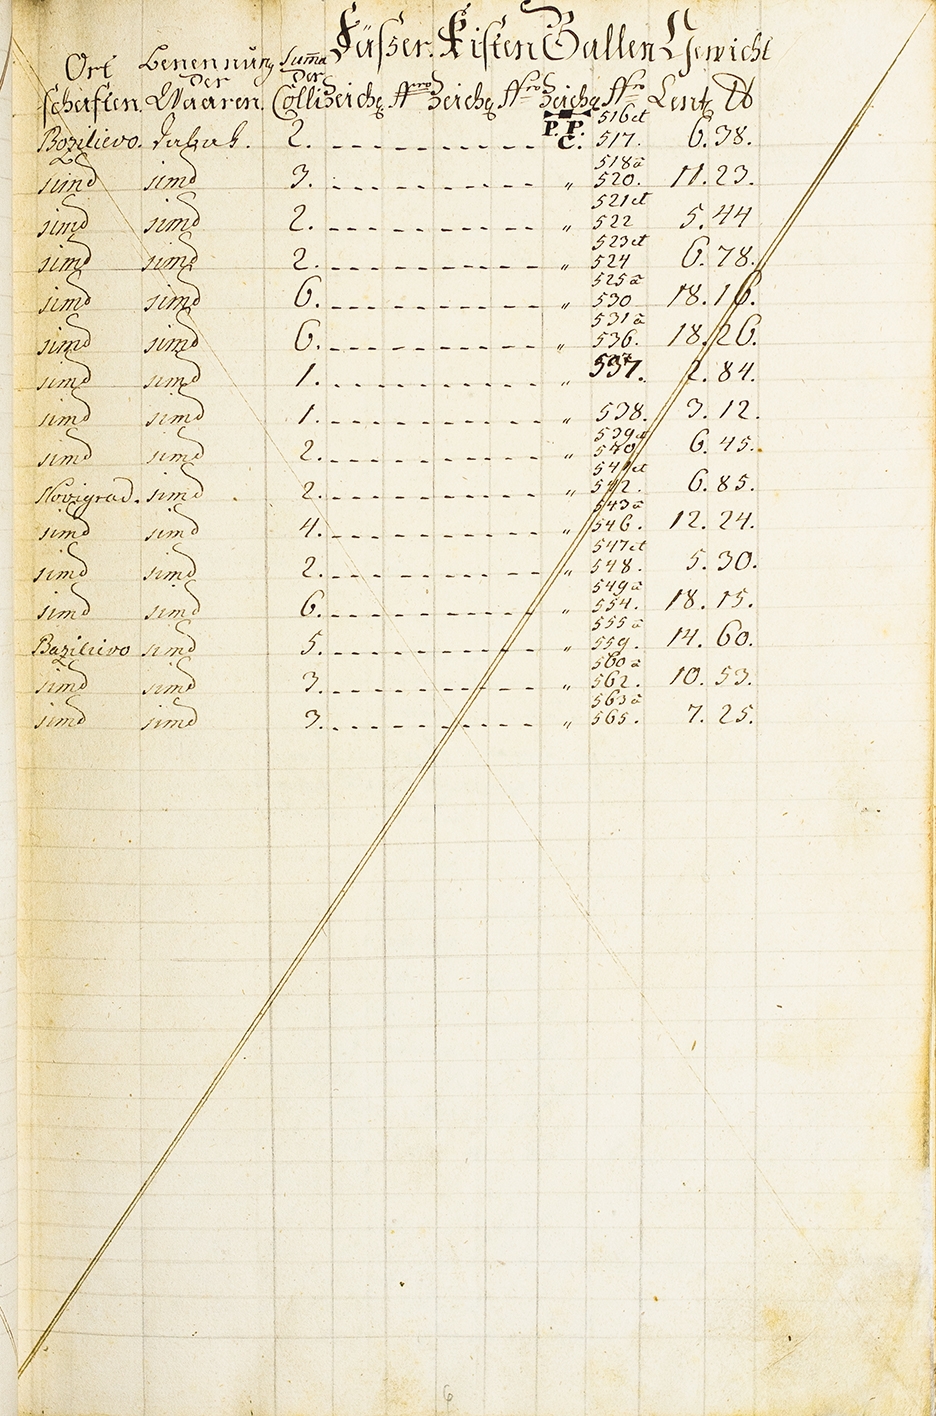 Fässer. Kisten Ballen Gewicht
Ort Benennung Summa
der der
schaften. Waaren. Colli Zeich: Nro Zeich: Nro Zeich: Nro Cent: ℔
516 et
Bozilievo. Tabak. 2. P. P. C. 517. 6. 38.
518 a
simd simd 3. „ 520. 11. 23.
521 et
simd simd 2. „ 522 5. 44
523 et
simd simd 2. „ 524 6. 78.
525 a
simd simd 6. „ 530 18. 16.
531 a
simd simd 6. „ 536. 18. 26.
simd simd 1. „ 537. 2. 84.
simd simd 1. „ 538. 3. 12.
539 et
simd simd 2. „ 540 6. 45.
541 et
Novigrad. simd 2. „ 542. 6. 85.
543 a
simd simd 4. „ 546. 12. 24.
547 et
simd simd 2. „ 548. 5. 30.
549 a
simd simd 6. „ 554. 18. 15.
555 a
Bazilievo simd 5. „ 559. 14. 60.
560 a
simd simd 3. „ 562. 10. 53.
563 a
simd simd 3. „ 565. 7. 25.
6